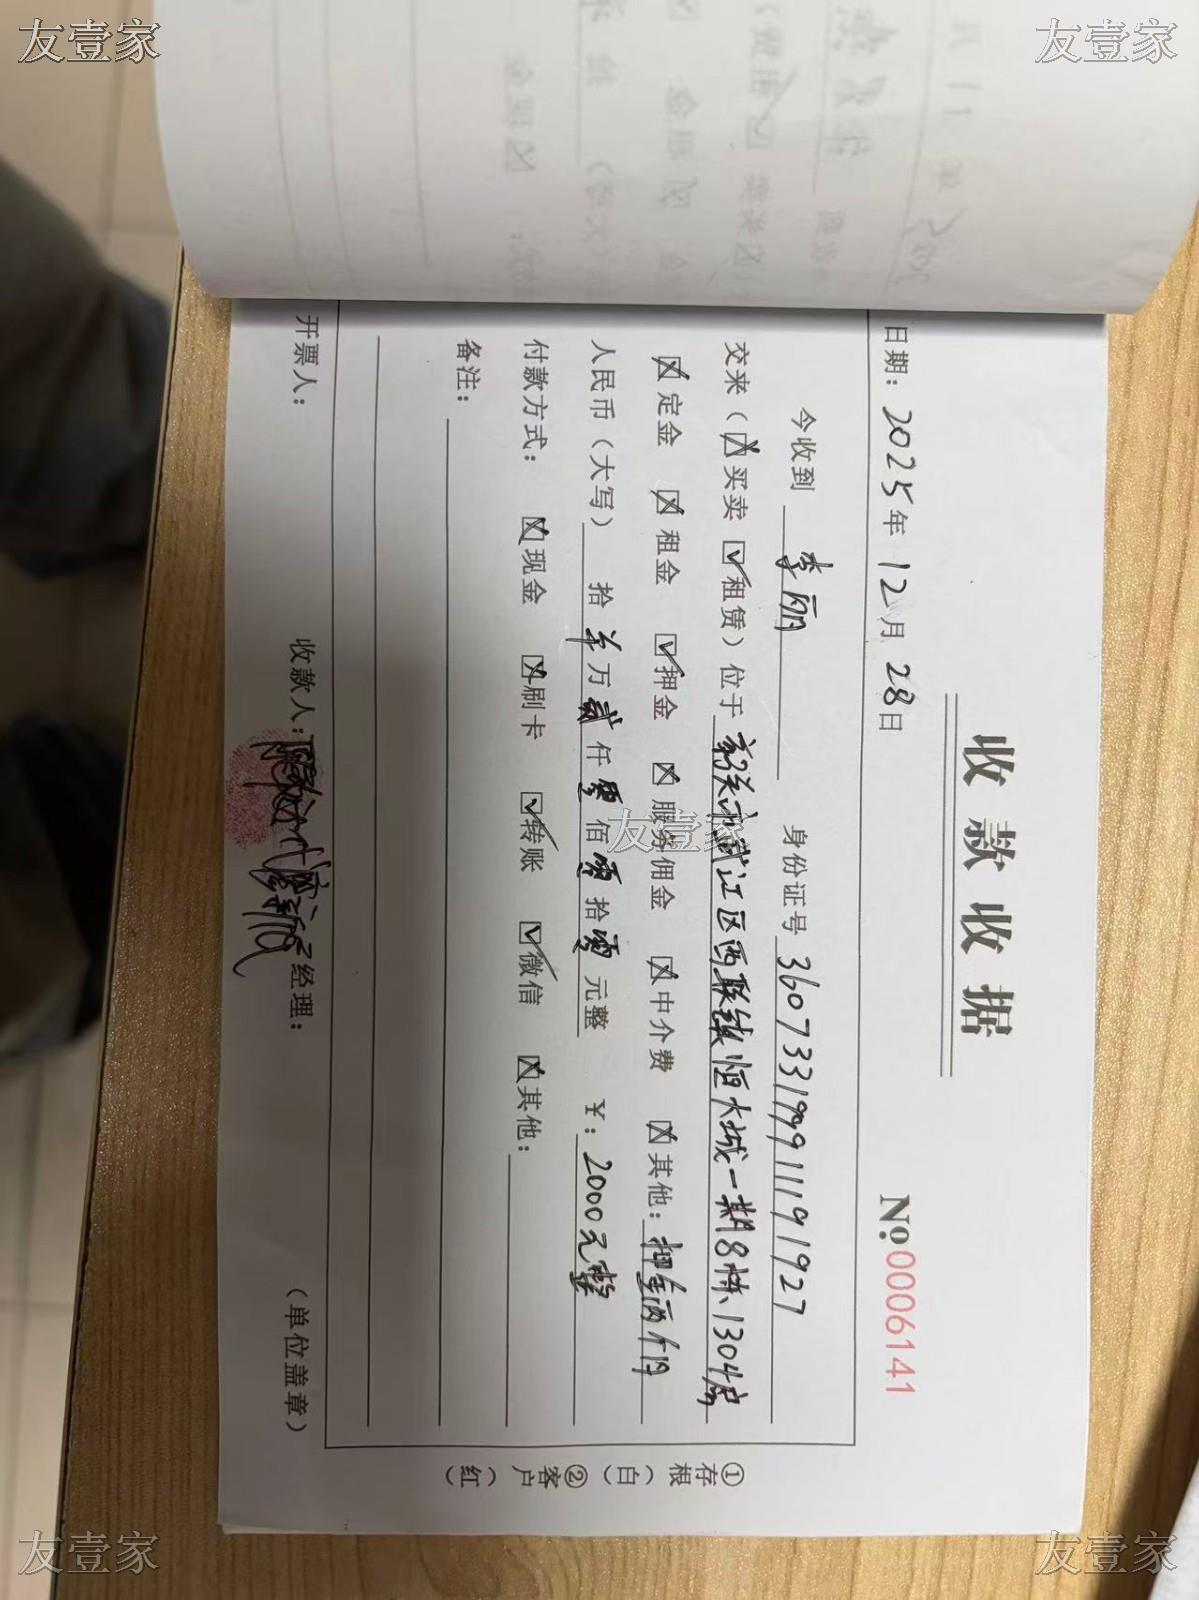 友壹家
友壹家
收款收据
No.0006141
日期：2025年12月28日
今收到 李丽 身份证号 360733199911191927
交来（☒买卖 ☑租赁）位于 韶关市武江区西联镇恒大城一期8栋、1304房
☒定金 ☒租金 ☑押金 ☒服务佣金 ☒中介费 ☒其他：押金两个月
人民币（大写） 拾 羊 万 贰 仟 零 佰 零 拾 零 元整 ￥：2000元整
付款方式：☒现金 ☒刷卡 ☑转账 ☑微信 ☒其他：
备注：
开票人： 收款人： 经理： （单位盖章）
①存根（白）
②客户（红）
友壹家
友壹家
友壹家